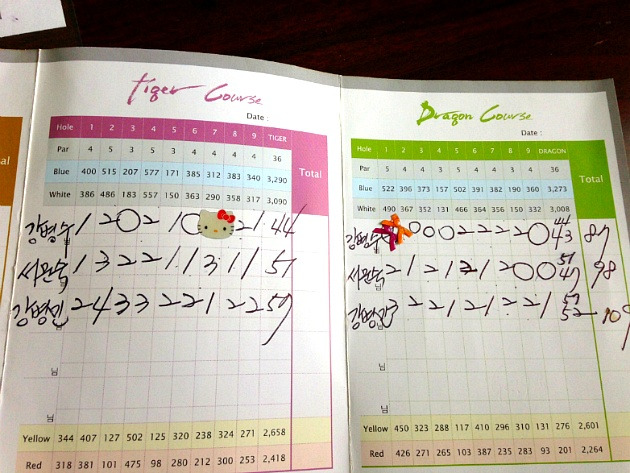 Tiger Course
Date :
Hole 1 2 3 4 5 6 7 8 9 TIGER Total
Par 4 5 3 5 3 4 4 4 4 36
Blue 400 515 207 577 171 385 312 383 340 3,290
White 386 486 183 557 150 363 290 358 317 3,090
1 2 0 2 1 0 2 1 44
서완숙 1 3 2 2 1 1 3 1 1 51
강병민 2 4 3 3 2 2 1 2 2 57
님
님
Yellow 344 407 127 502 125 320 238 324 271 2,658
Red 318 381 101 475 98 280 212 300 253 2,418
Dragon Course
Date :
Hole 1 2 3 4 5 6 7 8 9 DRAGON Total
Par 5 4 4 3 5 4 4 3 4 36
Blue 522 396 373 157 502 391 382 190 360 3,273
White 490 367 352 131 466 364 356 150 332 3,008
44
0 0 0 2 2 2 2 0 43 87
51
서완숙 2 1 2 1 2 1 2 0 0 47 98
57
강병민 3 2 2 1 2 1 2 2 1 52 109
님
님
Yellow 450 323 288 117 410 296 310 131 276 2,601
Red 426 271 265 103 387 235 283 93 201 2,264